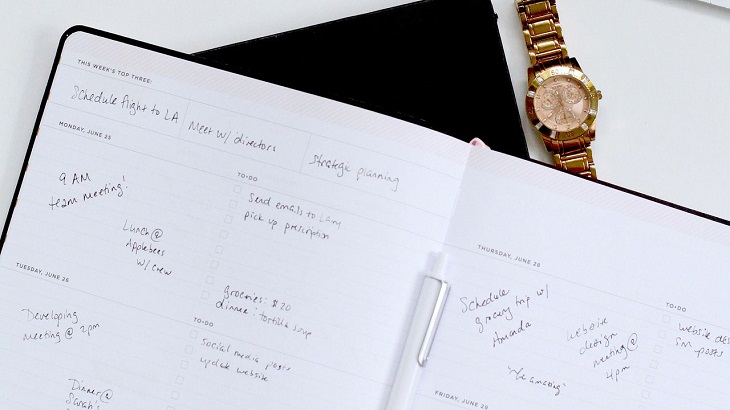 THIS WEEK'S TOP THREE:
Schedule fight to LA
Meet w/ directors
Strategic planning
MONDAY, JUNE 25
9 AM
team meeting!
Lunch @
Applebees
w/ crew
TO-DO
Send emails to Larry
pick up prescription
groceries: $20
dinner: tortilla soup
TUESDAY, JUNE 26
Developing
meeting @ 2pm
Dinner @
Sarah's
TO-DO
social media posts
update website
THURSDAY, JUNE 28
Schedule
grocery trip w/
Amanda
website
design
meeting @
4pm
"be amazing"
TO-DO
website des
sm posts
FRIDAY, JUNE 29